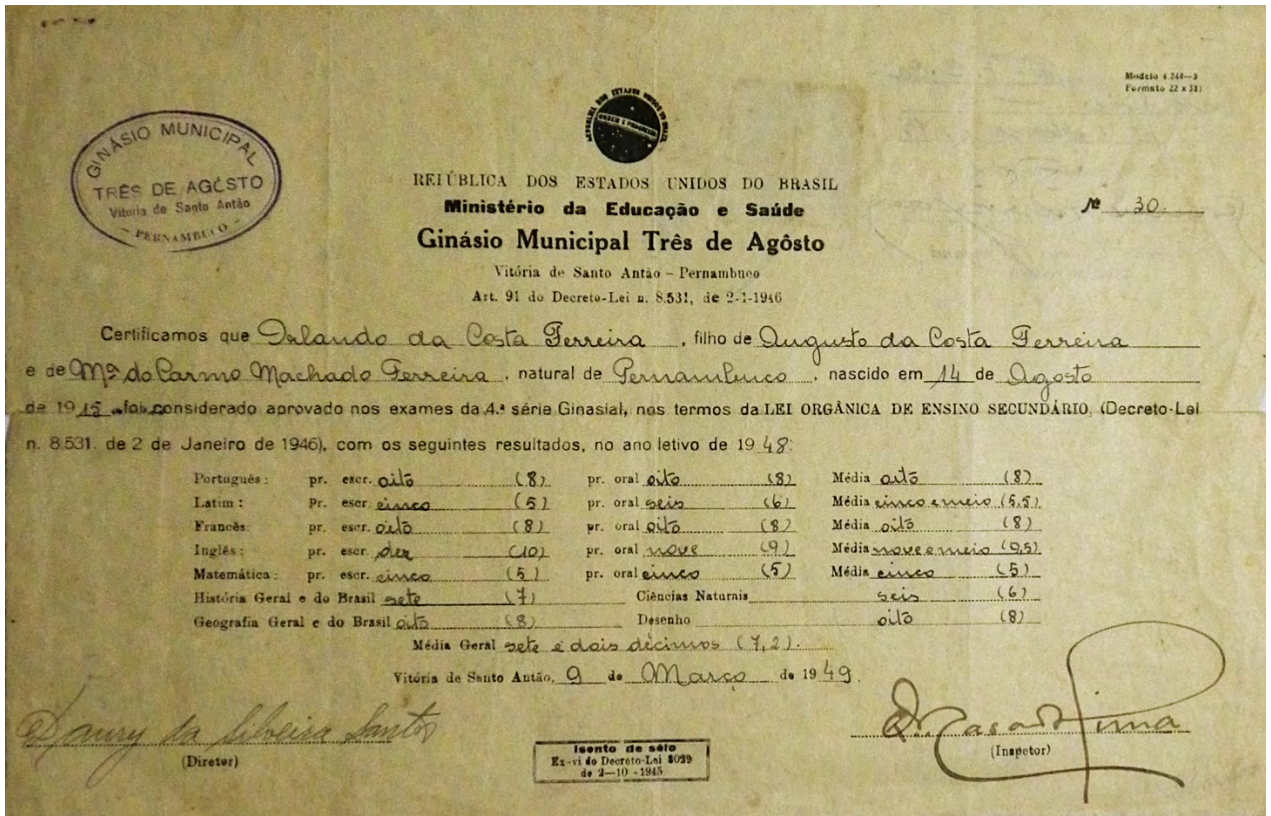 Modelo 4.244—3
Formato 22 x 33
GINÁSIO MUNICIPAL
TRÊS DE AGÔSTO
Vitória de Santo Antão
— PERNAMBUCO —
REPUBLICA DOS ESTADOS UNIDOS DO BRASIL
ORDEM E PROGRESSO
REPÚBLICA DOS ESTADOS UNIDOS DO BRASIL
Ministério da Educação e Saúde
Nº 30.
Ginásio Municipal Três de Agôsto
Vitória de Santo Antão – Pernambuco
Art. 91 do Decreto-Lei n. 8.531, de 2-1-1946
Certificamos que Orlando da Costa Ferreira, filho de Augusto da Costa Ferreira
e de Mª do Carmo Machado Ferreira, natural de Pernambuco, nascido em 14 de Agosto
de 1915 foi considerado aprovado nos exames da 4.ª série Ginasial, nos termos da LEI ORGÂNICA DE ENSINO SECUNDÁRIO, (Decreto-Lei
n. 8.531. de 2 de Janeiro de 1946), com os seguintes resultados, no ano letivo de 1948:
Português: pr. escr. oito (8) pr. oral oito (8) Média oito (8)
Latim: pr. escr. cinco (5) pr. oral seis (6) Média cinco e meio (5,5)
Francês: pr. escr. oito (8) pr. oral oito (8) Média oito (8)
Inglês: pr. escr. dez (10) pr. oral nove (9) Média nove e meio (9,5)
Matemática: pr. escr. cinco (5) pr. oral cinco (5) Média cinco (5)
História Geral e do Brasil sete (7) Ciências Naturais seis (6)
Geografia Geral e do Brasil oito (8) Desenho oito (8)
Média Geral sete e dois décimos (7,2).
Vitória de Santo Antão, 9 de Março de 1949.
da Silveira Santos
Lima
(Diretor)
(Inspetor)
Isento de sêlo
Ex-vi do Decreto-Lei 8029
de 2—10-1945